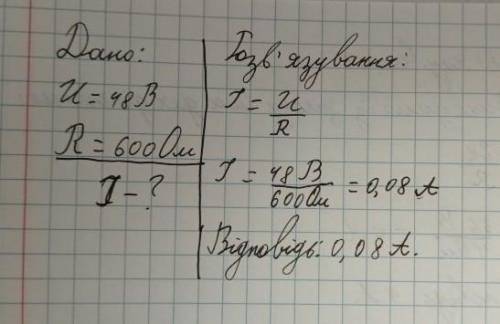 Дано:
U = 48 В
R = 600 Ом
I - ?
Розв'язування:
I = U/R
I = 48 В/600 Ом = 0,08 А
Відповідь: 0,08 А.